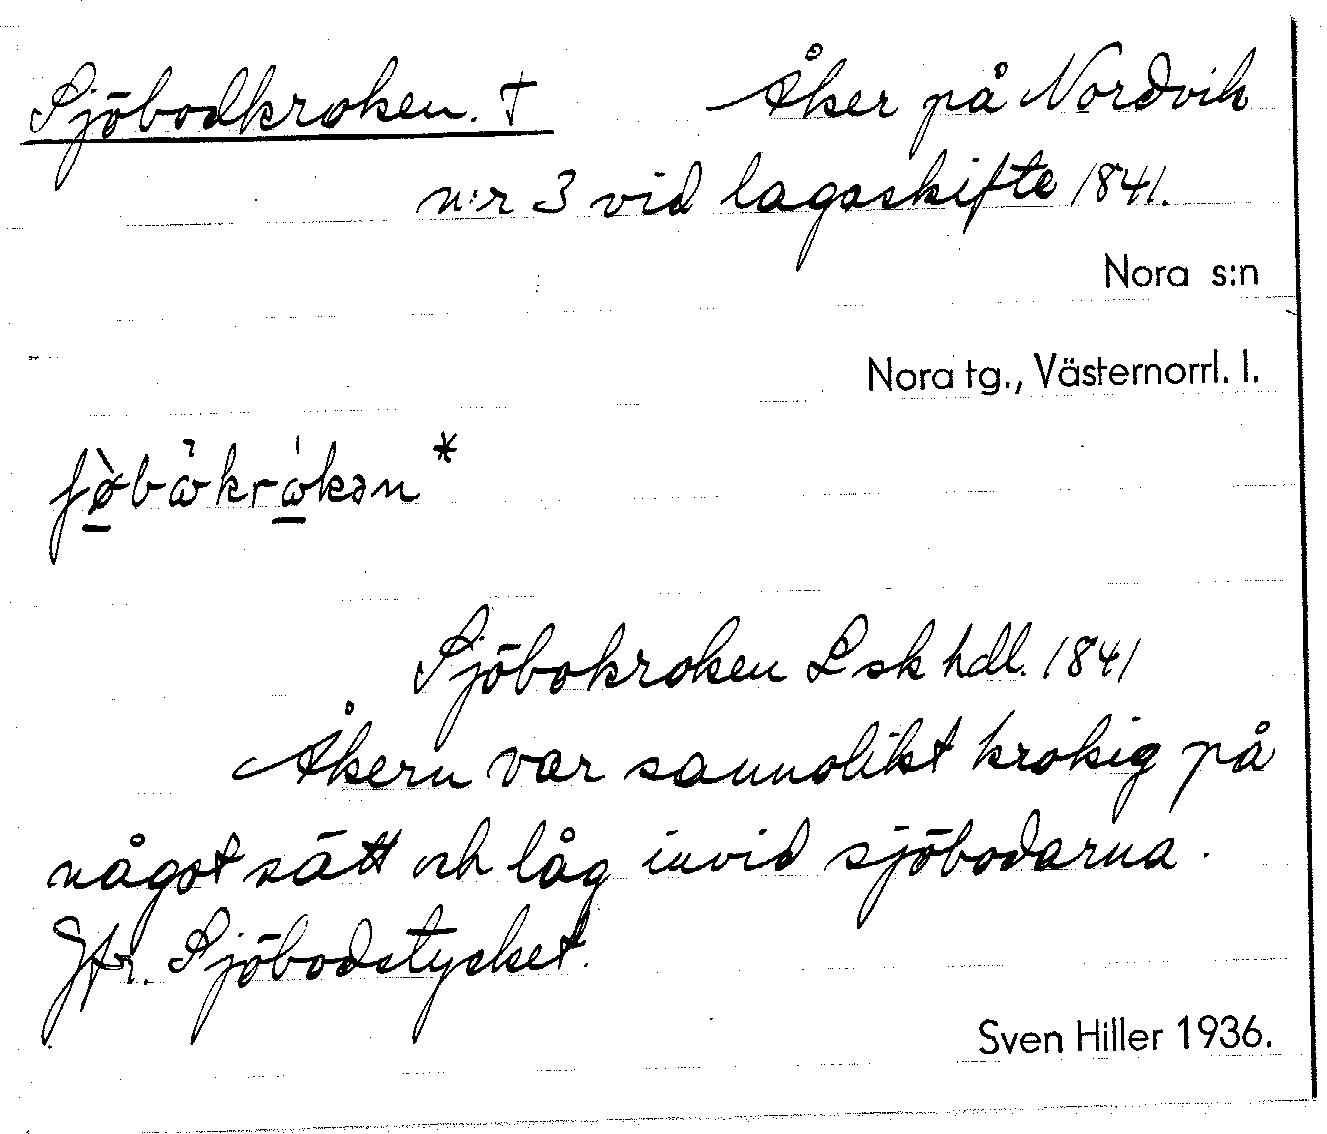 Sjöbodkroken. † Åker på Nordvik
n:r 3 vid lagaskifte 1841.
Nora s:n
Nora tg., Västernorrl. l.
ʃø̠̀bὼkrώ̠kən *
Sjöbokroken Lsk hdl. 1841
Åkern var sannolikt krokig på
något sätt och låg invid sjöbodarna.
Jfr. Sjöbodstycket.
Sven Hiller 1936.